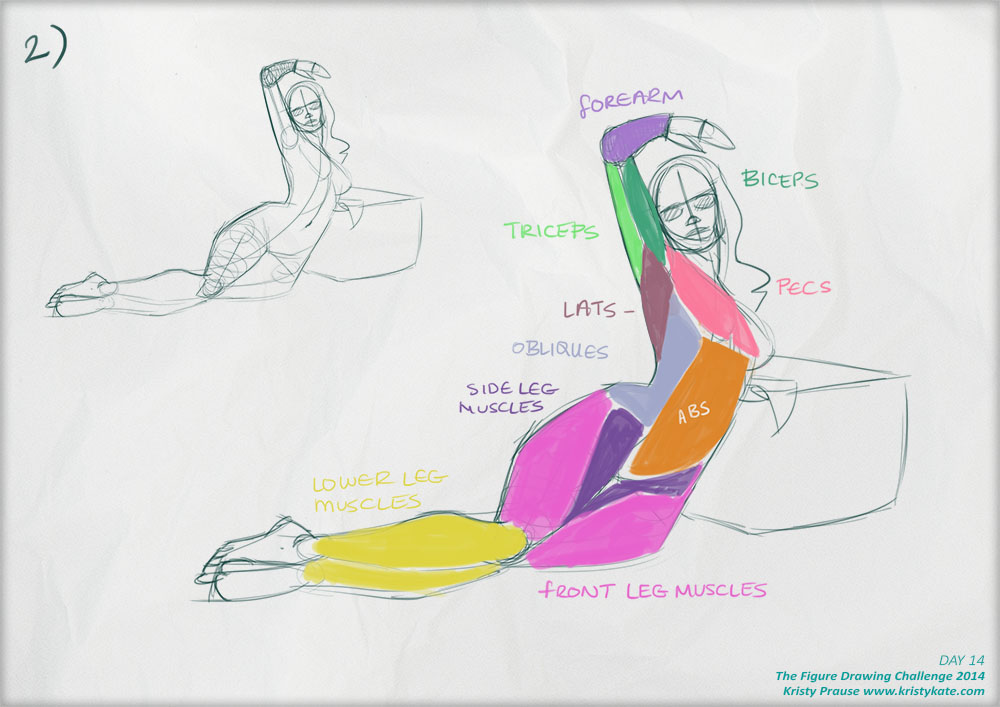 2)
FOREARM
BICEPS
TRICEPS
PECS
LATS -
OBLIQUES
SIDE LEG
MUSCLES
ABS
LOWER LEG
MUSCLES
FRONT LEG MUSCLES
DAY 14
The Figure Drawing Challenge 2014
Kristy Prause www.kristykate.com